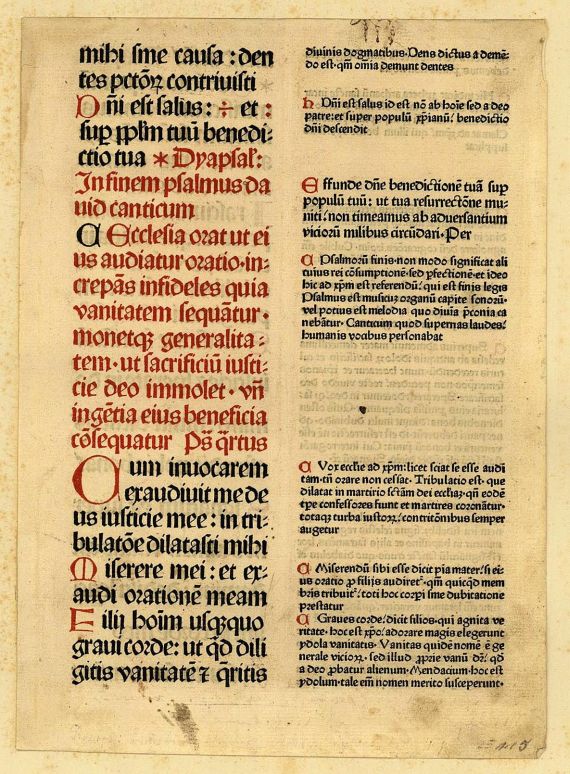 mihi sine causa : den
tes pctōꝝ contrivisti
Dñi est salus : ÷ et :
sup ꝓplm tuū benedi-
ctio tua * Dyapsal:
In finem psalmus da
uid canticum
¶ Ecclesia orat ut ei
us audiatur oratio· in-
crepās infideles quia
vanitatem sequātur·
monetqꝫ generalita-
tem· ut sacrificiū iusti-
cie deo immolet· vñ
ingētia eius beneficia
cōsequatur Ps̄ q̄rtus
Cum inuocarem
exaudiuit me de
us iusticie mee : in tri-
bulatōe dilatasti mihi
Miserere mei : et ex-
audi orationē meam
Filij hoīm usqꝫquo
graui corde : ut qd̄ dili
gitis vanitatē ⁊ q̄ritis
diuinis dogmatibus· Dens dictus a demē-
do est· qm̄ oīa demunt dentes
Dñi est salus id est nō ab hoīe sed a deo
patre: et super populū xp̄ianū: benedictio
dn̄i descendit
Effunde dn̄e benedictionē tuā sup
populū tuū: ut tua resurrectōne mu-
niti: non timeamus ab aduersantium
vicioꝝ milibus circūdari· Per
¶ Psalmorū finis· non modo significat ali
cuius rei cōsumptionē· sed ꝑfectionē· et ideo
hic ad xp̄m est referendū: qui est finis legis
Psalmus est musicū organū capite sonorū·
vel potius est melodia quo diuīa p̄conia ca
nebātur· Canticum quod supernas laudes:
humanis vocibus personabat
¶ Vox eccl̄ie ad xp̄m: licet sciat se esse audi
tam· tn̄ orare non cessat· Tribulatio est· que
dilatat in martirio sc̄tam dei eccl̄iaꝫ· qn̄ eodē
tp̄e confessores funt et martires coronātur·
totaqꝫ turba iustoꝝ: contritōnibus semper
augetur
¶ Miserendū sibi esse dicit pia mater: si ei-
us oratio ꝓ filijs audiret̄· qm̄ quicqd̄ mem
bris tribuit̄: toti hoc corpi sine dubitatione
prestatur
¶ Graues corde: dicit filios· qui agnita ve
ritate· hoc est xp̄o: adorare magis elegerunt
ydola vanitatis· Vanitas quidē nomē ē ge
nerale vicioꝝ· sed illud ꝓprie vanū dr̄: qd̄
a deo ꝓbatur alienum· Mendacium· hoc est
ydolum· tale em̄ nomen merito susceperunt·